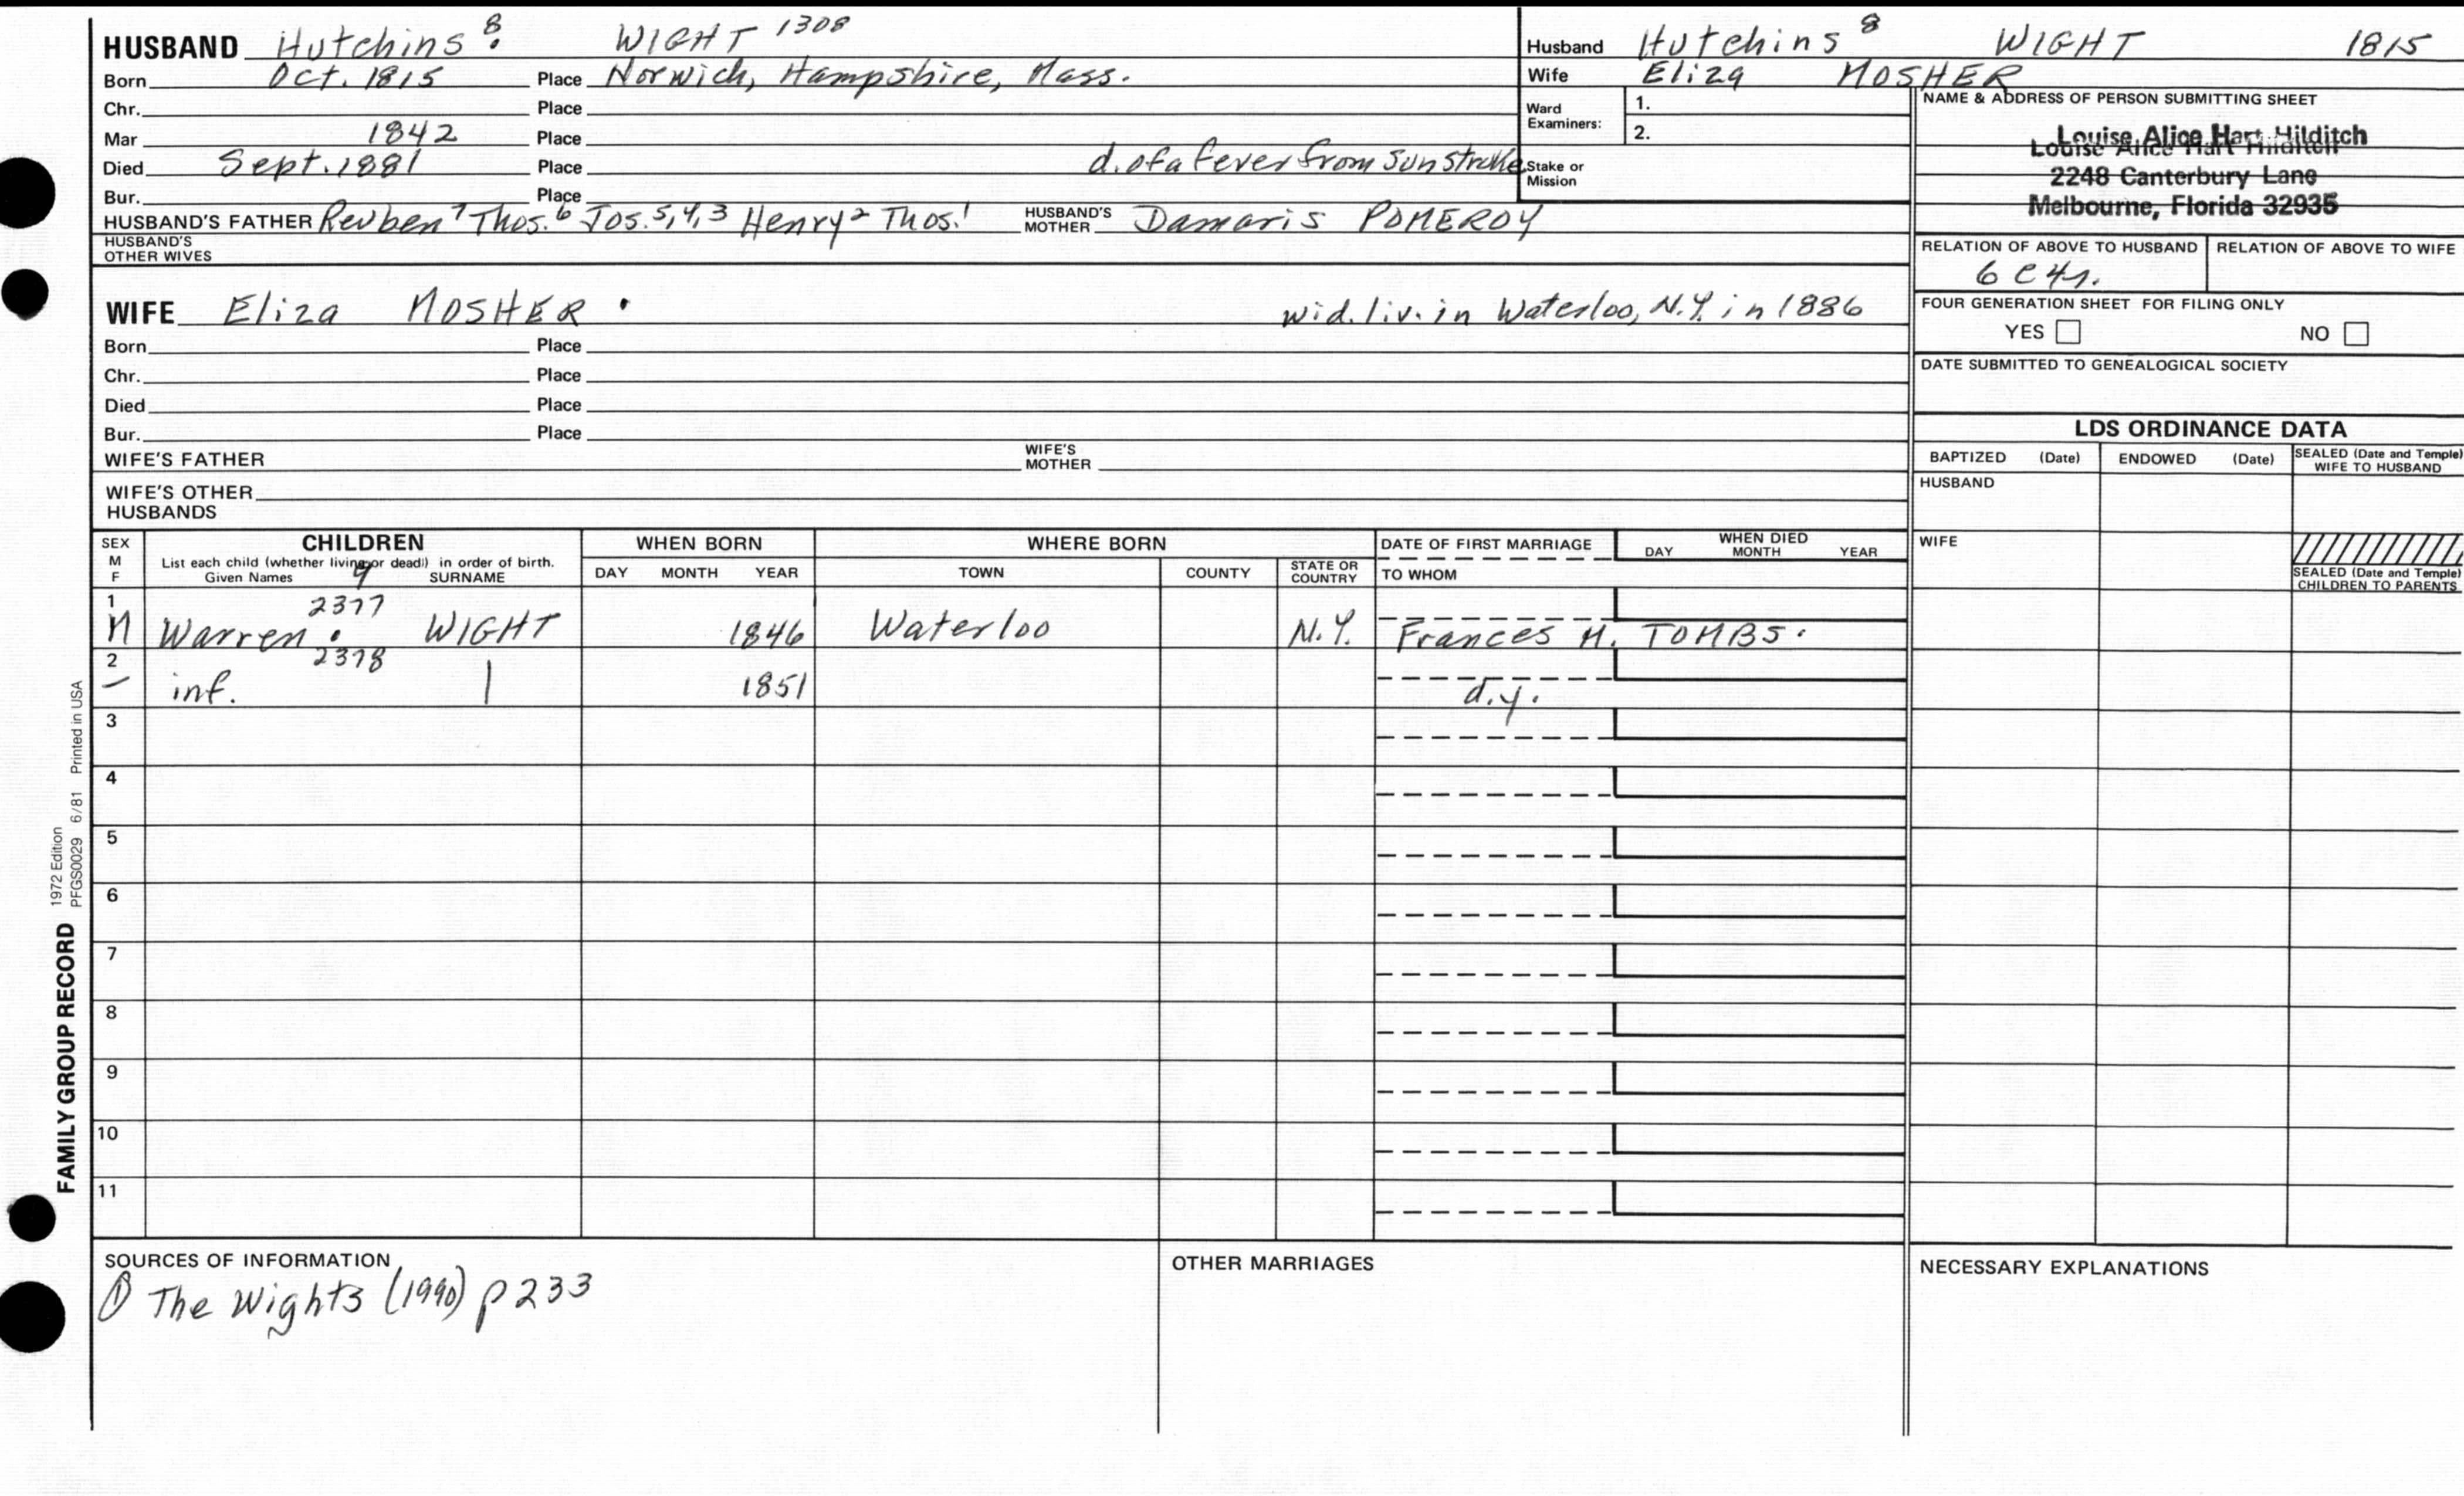 HUSBAND Hutchins 8. WIGHT 1308
Born Oct. 1815 Place Norwich, Hampshire, Mass.
Chr. Place
Mar 1842 Place
Died Sept. 1881 Place d. of a fever from sunstroke
Bur. Place
HUSBAND'S FATHER Reuben 7 Thos. 6 Jos. 5,4,3 Henry 2 Thos. 1 HUSBAND'S MOTHER Damaris POMEROY
HUSBAND'S OTHER WIVES
Husband Hutchins 8 WIGHT 1815
Wife Eliza MOSHER
Ward Examiners: 1.
2.
Stake or Mission
NAME & ADDRESS OF PERSON SUBMITTING SHEET
Louise Alice Hart Hilditch
Louise Alice Hart Hilditch
2248 Canterbury Lane
Melbourne, Florida 32935
RELATION OF ABOVE TO HUSBAND RELATION OF ABOVE TO WIFE
6 c4r.
FOUR GENERATION SHEET FOR FILING ONLY
YES NO
DATE SUBMITTED TO GENEALOGICAL SOCIETY
WIFE Eliza MOSHER . wid. liv. in Waterloo, N.Y. in 1886
Born Place
Chr. Place
Died Place
Bur. Place
WIFE'S FATHER WIFE'S MOTHER
WIFE'S OTHER HUSBANDS
LDS ORDINANCE DATA
BAPTIZED (Date) ENDOWED (Date) SEALED (Date and Temple) WIFE TO HUSBAND
HUSBAND
WIFE
SEALED (Date and Temple) CHILDREN TO PARENTS
SEX M F CHILDREN WHEN BORN WHERE BORN DATE OF FIRST MARRIAGE WHEN DIED
List each child (whether living or dead) in order of birth.
Given Names 9 SURNAME DAY MONTH YEAR TOWN COUNTY STATE OR COUNTRY TO WHOM DAY MONTH YEAR
1 2377
M Warren . WIGHT 1846 Waterloo N.Y. Frances M. TOMBS.
2 2378
– inf. | 1851 d.y.
3
4
5
6
7
8
9
10
11
SOURCES OF INFORMATION OTHER MARRIAGES NECESSARY EXPLANATIONS
① The Wights (1990) p 233
FAMILY GROUP RECORD
1972 Edition
PFGS0029 6/81 Printed in USA